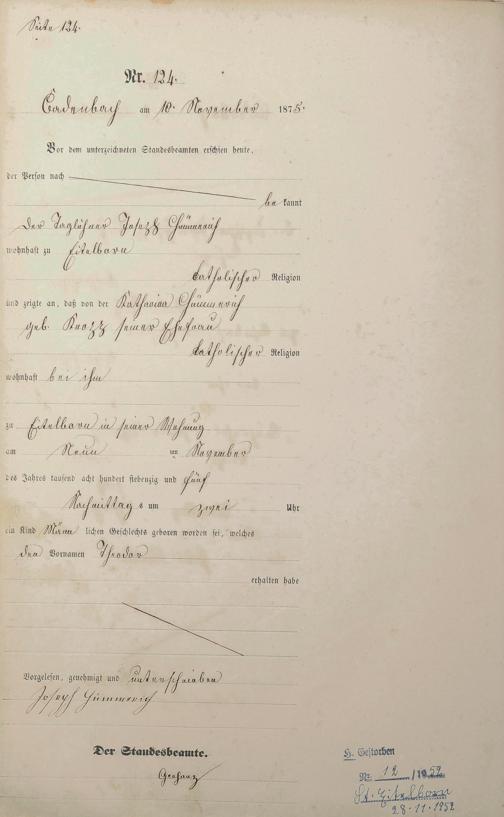 Seite 124.
Nr. 124.
Cadenbach am 10. November 1875.
Vor dem unterzeichneten Standesbeamten erschien heute,
der Person nach
be kannt
der Taglöhner Joseph Hümmerich
wohnhaft zu Eitelborn
katholischer Religion
und zeigte an, daß von der Katharina Hümmerich
geb. Knopp seiner Ehefrau
katholischer Religion
wohnhaft bei ihm
zu Eitelborn in seiner Wohnung
am Neun ten November
des Jahres tausend acht hundert siebenzig und fünf
Nachmittag s um zwei Uhr
ein Kind Männ lichen Geschlechts geboren worden sei, welches
den Vornamen Theodor
erhalten habe
Vorgelesen, genehmigt und unterschrieben
Joseph Hümmerich
Der Standesbeamte.
H. Gestorben
Nr. 12 /1952
St. Eitelborn
28.11.1952